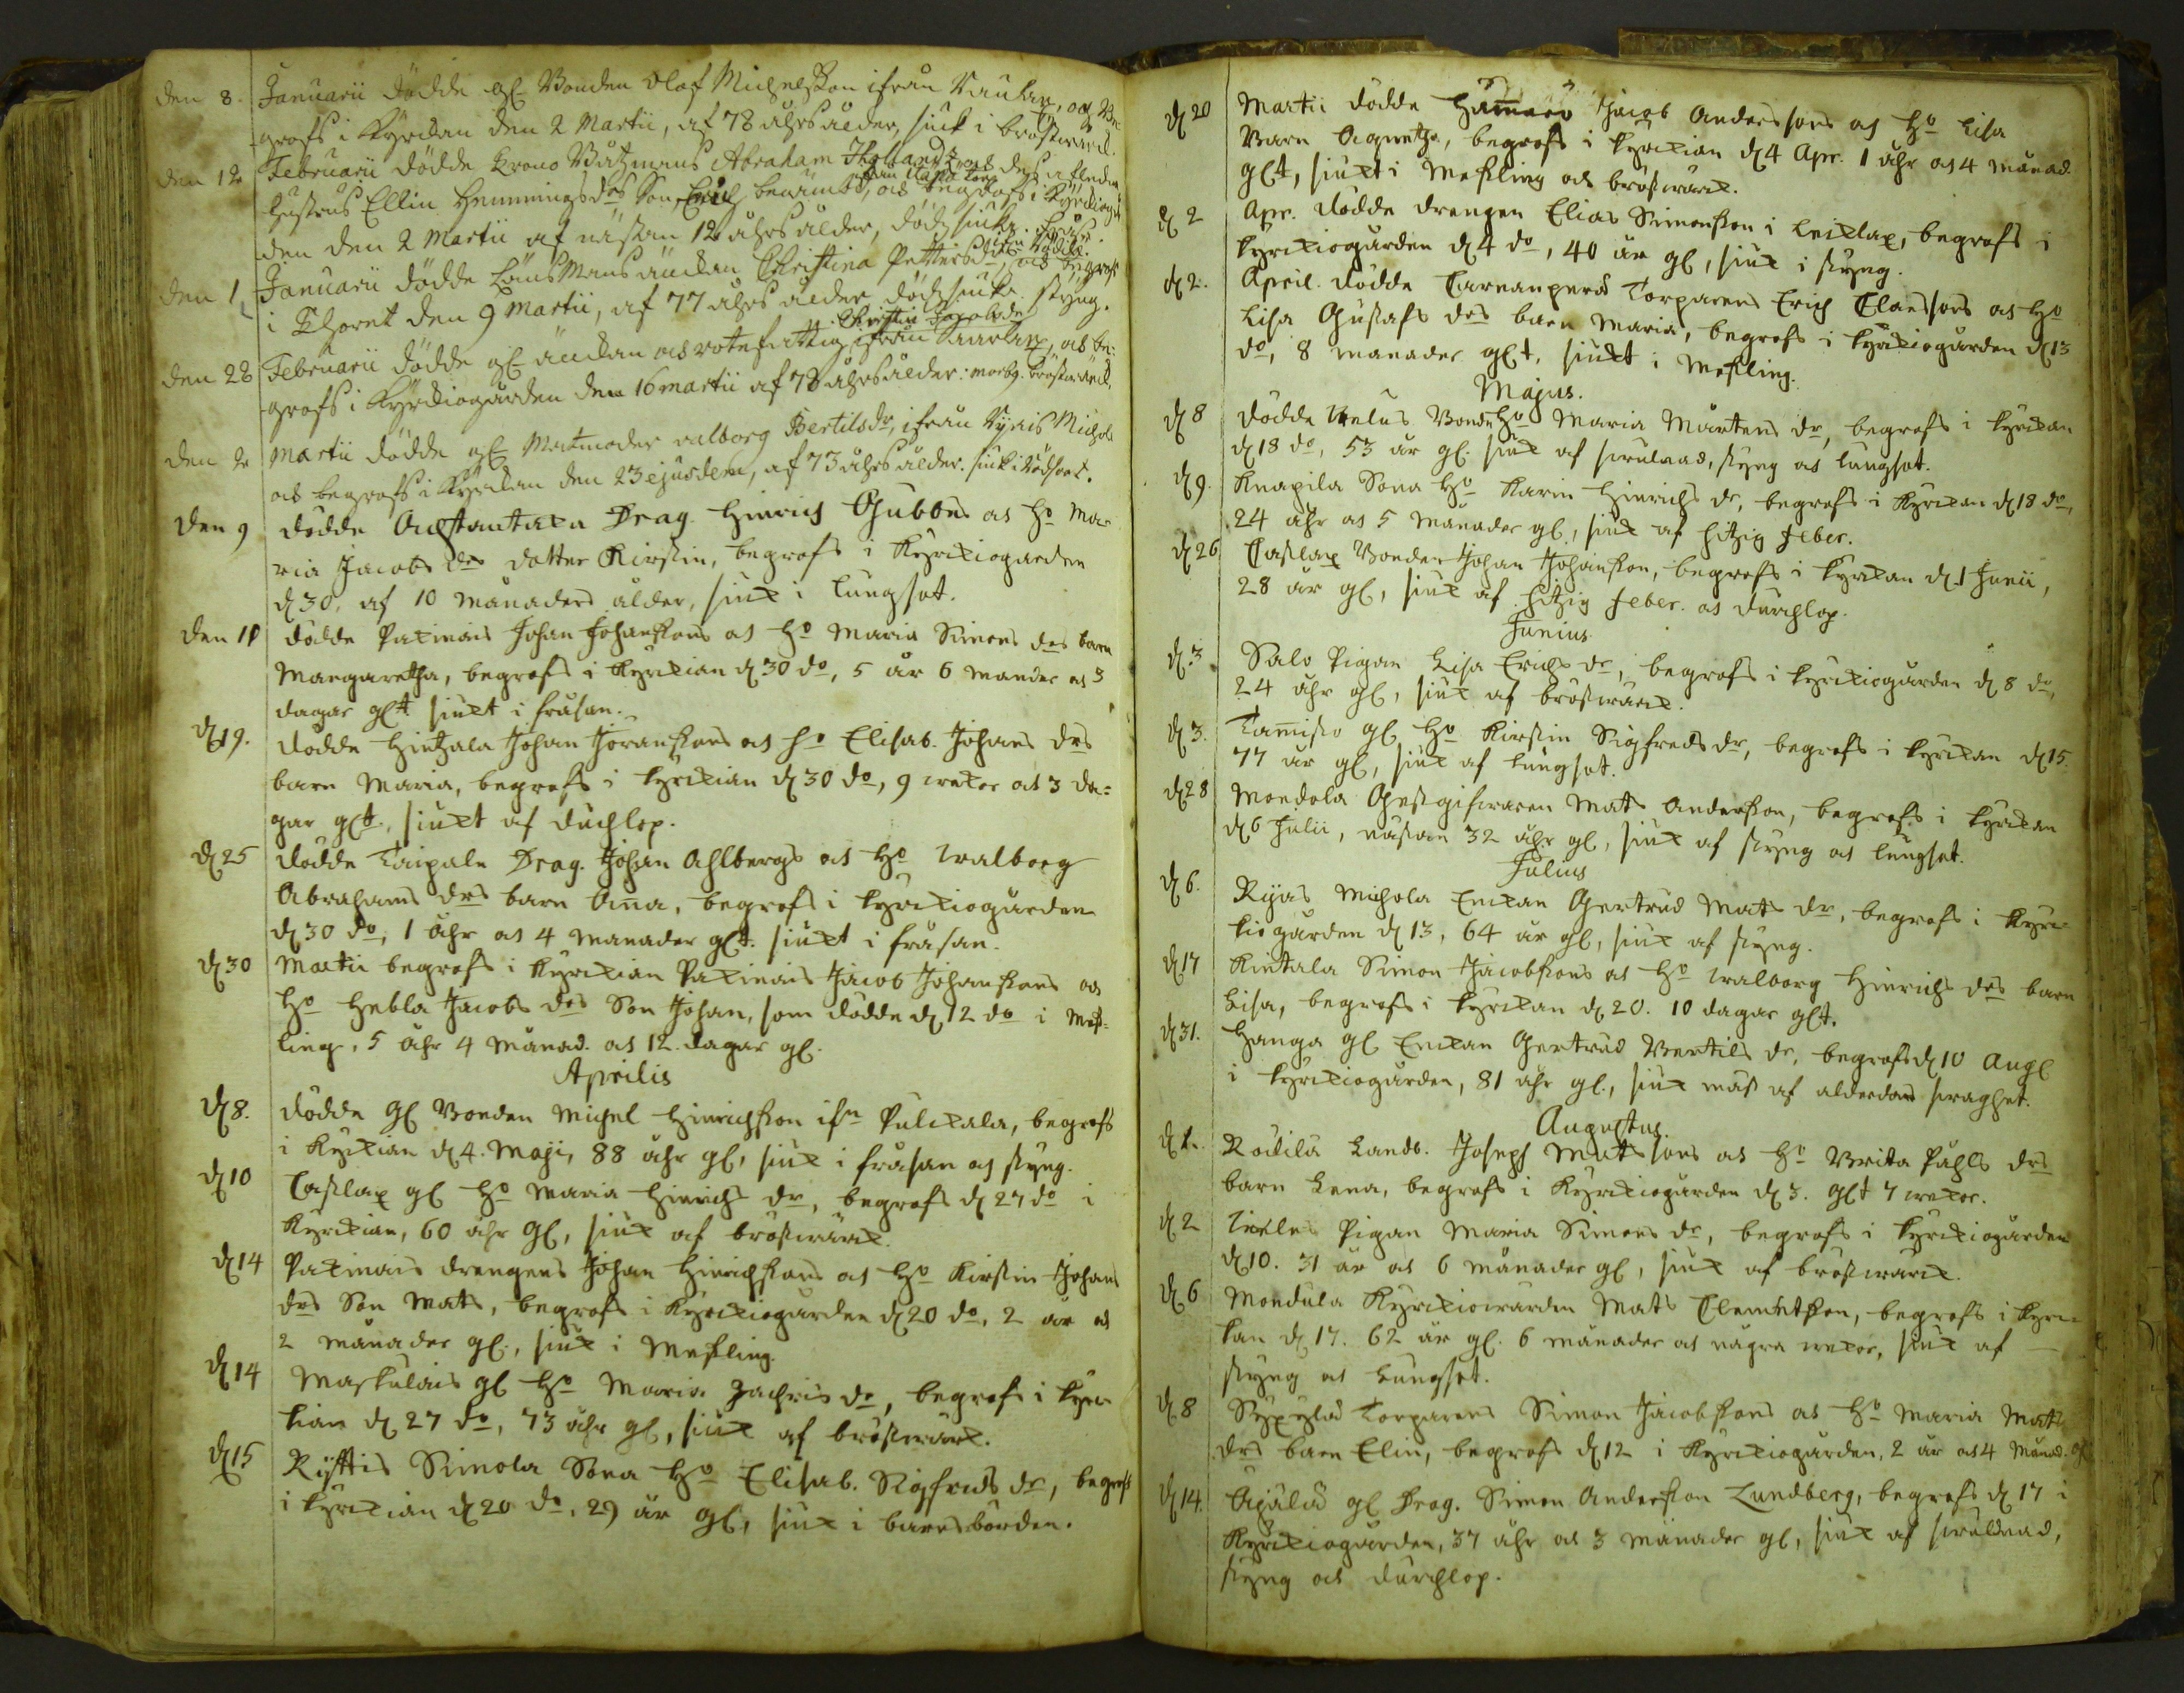 den 8. Januarii dödde gl. Bonden Olof Michelsson ifrån, och be
grofs i Kyrckan den 2 Martii, af 78 åhrs ålder, siuk i bröstwärck.
den 12 Februarii dödde Krono Båtzmans Abraham dess afledne
hustrus Ellin Hemmingsdrs Son Erich benämbd, och begrofs i Kyrckiogår
den den 2 Martii af nästan 12 åhrs ålder, dödz siuka. fråsa.
den 1 Januarii dödde Länsmans änckan Christina Pettersdr, och begrofs
i Choret den 9 Martii, af 77 åhrs ålder, dödz siuka. styng.
Christin Jacobsdr
den 28 Februarii dödde gl. änckan och rotefattig ifrån, och be:
grofs i Kyrckiogården den 16 martii af 78 åhrs ålder: morbg. bröstwärck.
den 2 Martii dödde gl. Matmoder valborg Bertilsdr, ifrån Ryais Michola
och begrofs i Kyrckan den 23 ejusdem, af 73 åhrs ålder. siuk i rödsoet.
den 9 dödde Drag. Hinrich Gubbes och Ho Ma
ria Jacobs drs dotter Kirstin, begrofs i Kyrckiogården
d 30, af 10 månaders ålder, siuk i lungsot.
den 11 dödde Pakinais Johan Johanssons och Ho Maria Simons drs barn
Margaretha, begrofs i Kyrckian d 30 do, 5 år 6 månader och 3
dagar glt siukt i fråsan.
d 19. dödde Hintzala Johan Joransons och Ho Elisab. Johans drs
barn Maria, begrofs i Kyrckian d 30 do, 9 wekor och 3 da=
gar glt., siukt af duchlop.
d 25 dödde Taipale Drag. Johan Ahlbergs och Ho walborg
Abrahams drs barn Anna, begrofs i Kyrckiogården
d 30 do, 1 åhr och 4 månader glt. siukt i fråsan.
d 30 Martii begrofs i Kyrckian Pakinais Jacob Johanssons och
Ho Hebla Jacobs drs Son Johan, som dödde d 12 do i Mess=
ling, 5 åhr 4 månad. och 12 dagar gl.
Aprilis
d 8. dödde gl Bonden Michel Hinrichsson ifn Pulckala, begrofs
i Kyrckian d 4. Maji, 88 åhr gl, siuk i fråsan och styng.
d 10 Taslax gl Ho Maria Hinrichs dr, begrofs d 27 do i
Kyrckian, 60 åhr gl, siuk af bröstwärck.
d 14 Pakinais drengens Johan Hinrichssons och Ho Kirstin Johans
drs Son Mats, begrofs i Kyrckiogården d 20 do, 2 år och
2 månader gl., siuk i Messling.
d 14 Maskulais gl Ho Maria Zachris dr, begrofs i Kyrc
kian d 27 do, 73 åhr gl, siuk af bröstwärck.
d 15 Ryttis Simola Sona Ho Elisab. Sigfreds dr, begrofs
i Kyrckian d 20 do, 29 år gl, siuk i barnsbörden.
d 20 Martii dödde Jacob Anderssons och Ho Lisa
Barn Agnetha, begrofs i Kyrckian d 4 Apr. 1 åhr och 4 månad.
glt, siukt i Messling och bröstwärck.
d 2 Apr. dödde drengen Elias Simonsson i Leiklax, begrofs i
Kyrckiogården d 4 do, 40 år gl, siuk i styng.
d 2. April. dödde Torparens Erich Claessons och Ho
Lisa Gustafs drs barn Maria, begrofs i Kyrckiogården d 13
do, 8 månader glt, siukt i Messling.
Majus.
d 8 dödde Bonde Ho Maria Mårtens dr, begrofs i Kyrckan
d 18 do, 53 år gl. siuk af swulnad, styng och lungsot.
d 9. Knapila Sona Ho Karin Hinrichs dr, begrofs i Kyrckan d 18 do,
24 åhr och 5 månader gl., siuk af hitzig feber.
d 26 Taslax Bonden Johan Johansson, begrofs i Kyrckan d 1 Junii,
28 år gl, siuk af hitzig feber. och durchlop.
Junius
d 3 Salo Pigan Lisa Erichs dr, begrofs i Kyrckiogården d 8 do,
24 åhr gl, siuk af bröstwärck.
d 3. Tamisto gl Ho Kirstin Sigfreds dr, begrofs i Kyrckan d 15.
77 år gl, siuk af lungsot.
d 28 Mondola Gestgifwaren Mats Andersson, begrofs i Kyrckan
d 6 Julii, nästan 32 åhr gl, siuk af styng och lungsot.
Julius
d 6. Ryas Michola Enckan Gertrud Mats dr, begrofs i Kyrc
kiogården d 13, 64 år gl, siuk af styng.
d 17 Kintala Simon Jacobssons och Ho walborg Hinrichs drs barn
Lisa, begrofs i Kyrckan d 20. 10 dagar glt.
d 31. Hanga gl Enckan Gertrud Bertils dr, begrofs d 10 Aug
i Kyrckiogården, 81 åhr gl., siuk mäst af alderdoms swaghet.
Augustus.
d 1. Rådila Landb. Joseph Mats sons och Ho Brita Påhls drs
barn Lena, begrofs i Kyrckiogården d 3. glt 7 wekor.
d 2 Pigan Maria Simons dr, begrofs i Kyrckiogården
d 10. 31 år och 6 månader gl, siuk af bröstwärck.
d 6 Mondula Kyrckiowärden Mats Clemetsson, begrofs i Kyrc
kan d 17. 62 år gl. 6 månader och några wekor, siuk af
styng och Lungsot.
d 8 Torparens Simon Jacobssons och Ho Maria Mats
drs barn Elin, begrofs d 12 i Kyrckiogården, 2 år och 4 Månad. gl
d 14. Ajala gl Drag. Simon Andersson Lundberg, begrofs d 17 i
Kyrckiogården, 37 åhr och 3 månader gl, siuk af swulnad,
styng och durchlop.